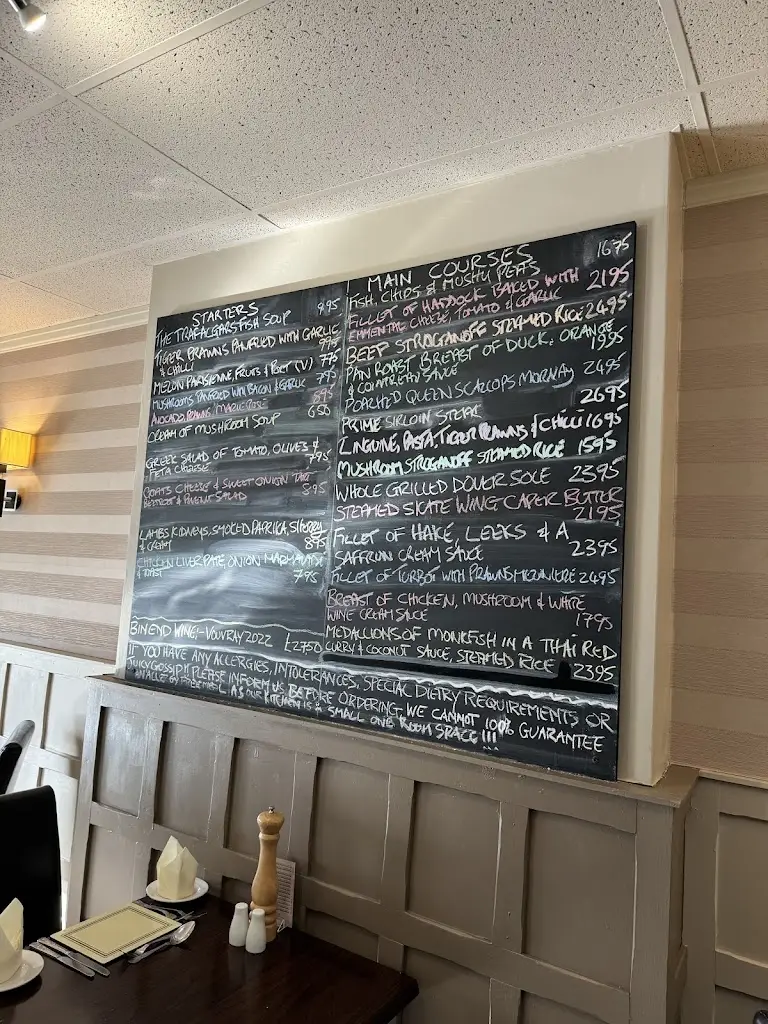 STARTERS
THE TRAFALGAR FISH SOUP 8.95
TIGER PRAWNS PANFRIED WITH GARLIC
& CHILLI 995
MELON PARISIENNE, FRUITS & PORT (V) 775
MUSHROOMS PANFRIED WITH BACON & GARLIC 795
AVOCADO, PRAWNS, MARIE ROSE 895
CREAM OF MUSHROOM SOUP 6 50
GREEK SALAD OF TOMATO, OLIVES &
FETA CHEESE 795
GOATS CHEESE & SWEET ONION TART
BEETROOT & SALAD 8.95
LAMBS KIDNEYS, SMOKED PAPRIKA, SHERRY
& CREAM 895
CHICKEN LIVER PATE, ONION MARMALADE
& TOAST 795
BIN END WINE!-VOUVRAY 2022 £2750
MAIN COURSES
FISH, CHIPS & MUSHY PEAS 1675
FILLET OF HADDOCK BAKED WITH
EMMENTAL CHEESE, TOMATO & GARLIC 2195
BEEF STROGANOFF STEAMED RICE 2495
PAN ROAST BREAST OF DUCK, ORANGE
& COINTREAU SAUCE 1995
POACHED QUEEN SCALLOPS MORNAY 2495
PRIME SIRLOIN STEAK 2695
LINGUINE, PASTA, TIGER PRAWNS & CHILLI 1695
MUSHROOM STROGANOFF STEAMED RICE 1595
WHOLE GRILLED DOVER SOLE 2395
STEAMED SKATE WING CAPER BUTTER
2195
FILLET OF HAKE, LEEKS & A
SAFFRON CREAM SAUCE 2395
FILLET OF TURBOT WITH PRAWNS MEUNIERE 2495
BREAST OF CHICKEN, MUSHROOM & WHITE
WINE CREAM SAUCE 1795
MEDALLIONS OF MONKFISH IN A THAI RED
CURRY & COCONUT SAUCE, STEAMED RICE 2395
IF YOU HAVE ANY ALLERGIES, INTOLERANCES, SPECIAL DIETARY REQUIREMENTS OR
JUICY GOSSIP!! PLEASE INFORM US BEFORE ORDERING. WE CANNOT 100% GUARANTEE
AN ALLERGY FREE MEAL AS OUR KITCHEN IS A SMALL ONE ROOM SPACE!!!